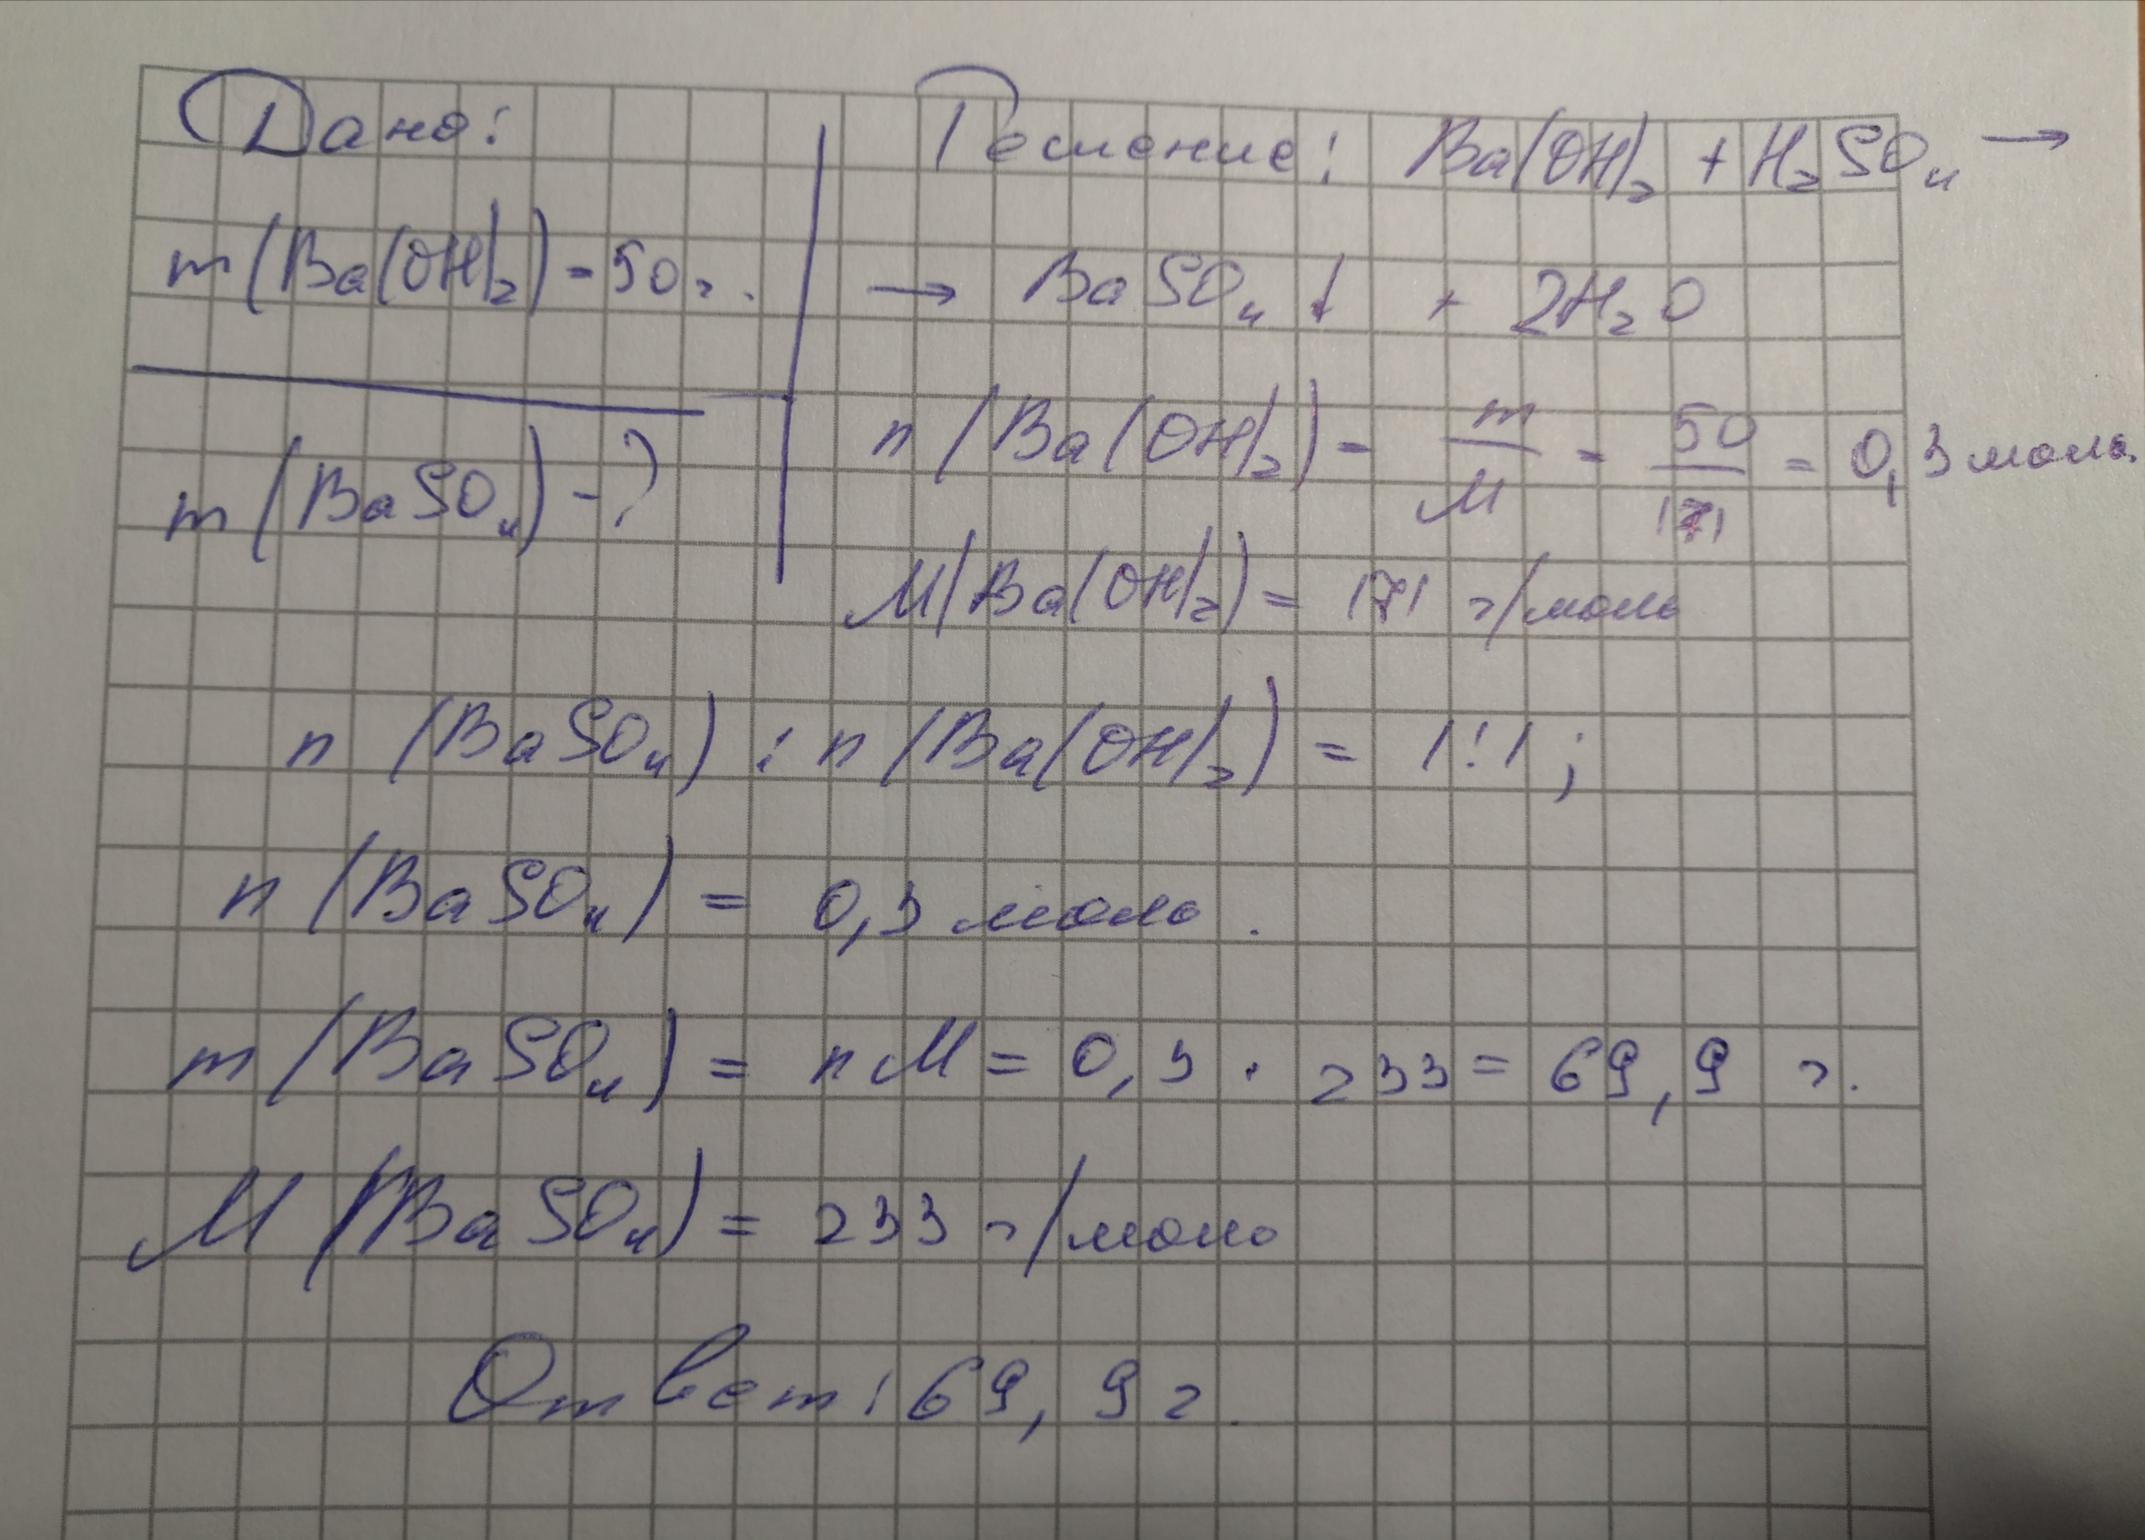 Дано:
m(Ba(OH)₂) = 50 г.
m(BaSO₄) - ?
Решение: Ba(OH)₂ + H₂SO₄ →
→ BaSO₄ ↓ + 2H₂O
n(Ba(OH)₂) = m/M = 50/171 = 0,3 моль.
M(Ba(OH)₂) = 171 г/моль
n(BaSO₄) : n(Ba(OH)₂) = 1:1;
n(BaSO₄) = 0,3 моль.
m(BaSO₄) = nM = 0,3 · 233 = 69,9 г.
M(BaSO₄) = 233 г/моль
Ответ: 69,9 г.